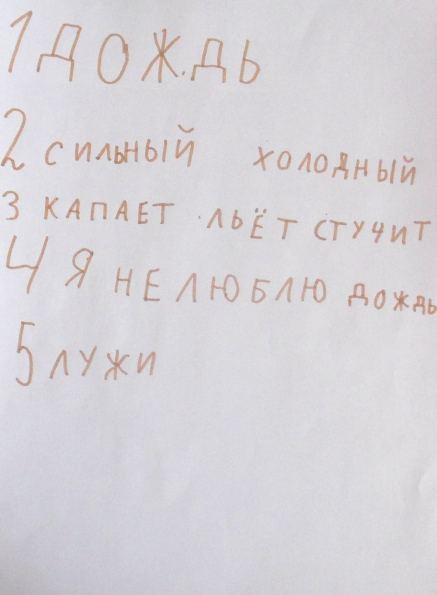 1 ДОЖДЬ
2 СИЛЬНЫЙ ХОЛОДНЫЙ
3 КАПАЕТ ЛЬЁТ СТУЧИТ
4 Я НЕ ЛЮБЛЮ ДОЖДЬ
5 ЛУЖИ